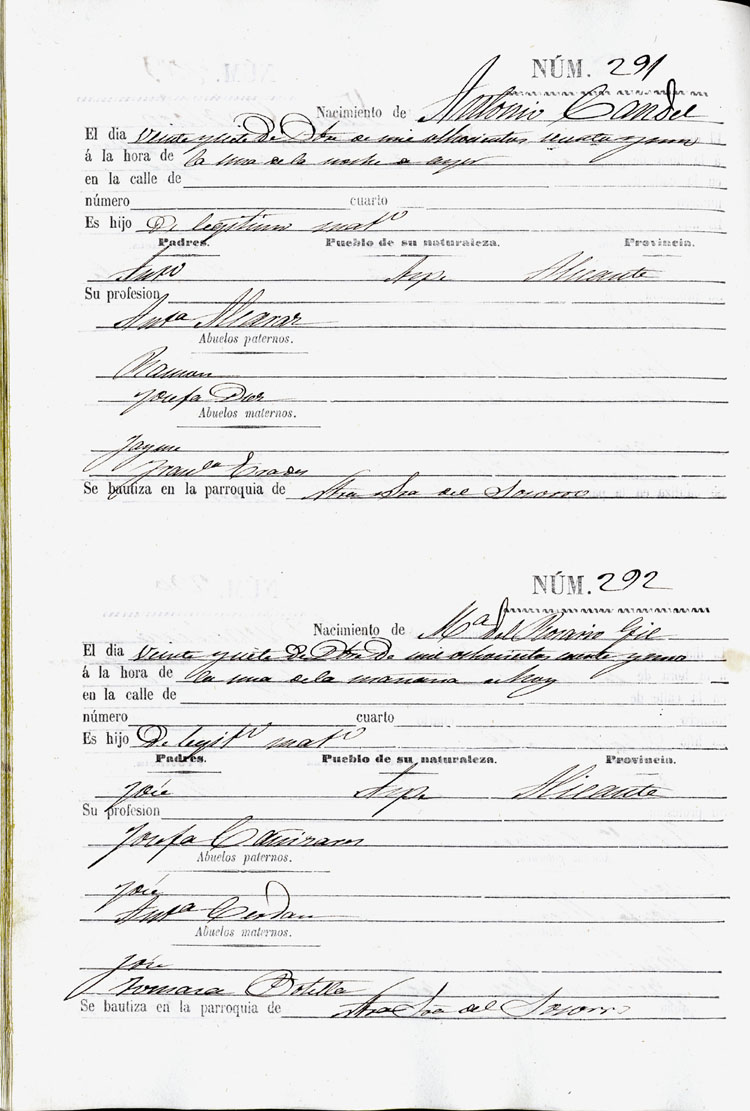 NÚM. 291
Nacimiento de Antonio Candel
El dia veinte y siete de Obre de mil ochocientos y uno
á la hora de la una de la noche de ayer
en la calle de
número cuarto
Es hijo De legitimo matº
Padres. Pueblo de su naturaleza. Provincia.
Antº Aspe Alicante
Su profesion
Antª Alcaraz
Abuelos paternos.
Ramon
Josefa Dies
Abuelos maternos.
Jayme
Franca
Se bautiza en la parroquia de Ntra Sra del Socorro
NÚM. 292
Nacimiento de Mª del Rosario Gil
El dia veinte y siete de Obre de mil ochocientos y uno
á la hora de la una de la mañana de hoy
en la calle de
número cuarto
Es hijo De legitº matº
Padres. Pueblo de su naturaleza. Provincia.
José Aspe Alicante
Su profesion
Josefa Cañizares
Abuelos paternos.
José
Antª Cerdan
Abuelos maternos.
José
Tomasa Botella
Se bautiza en la parroquia de Ntra Sra del Socorro